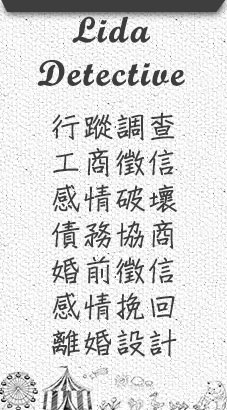 Lida
Detective
行蹤調查
工商徵信
感情破壞
債務協商
婚前徵信
感情挽回
離婚設計